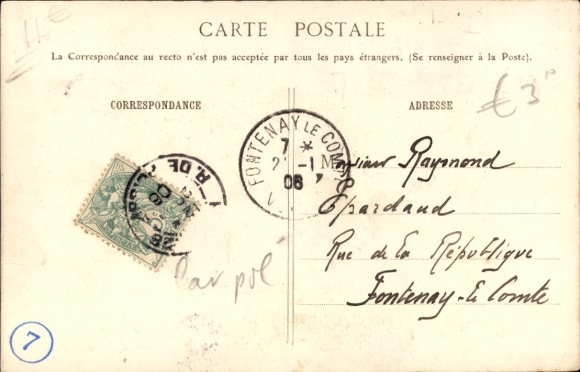 CARTE POSTALE
La Correspondance au recto n'est pas acceptée par tous les pays étrangers. (Se renseigner à la Poste).
CORRESPONDANCE
ADRESSE
€ 3
FONTENAY LE COMTE
7 *
2 -1
06
R. DE
Monsieur Raymond
Epardaud
Rue de la République
Fontenay-le Comte
7